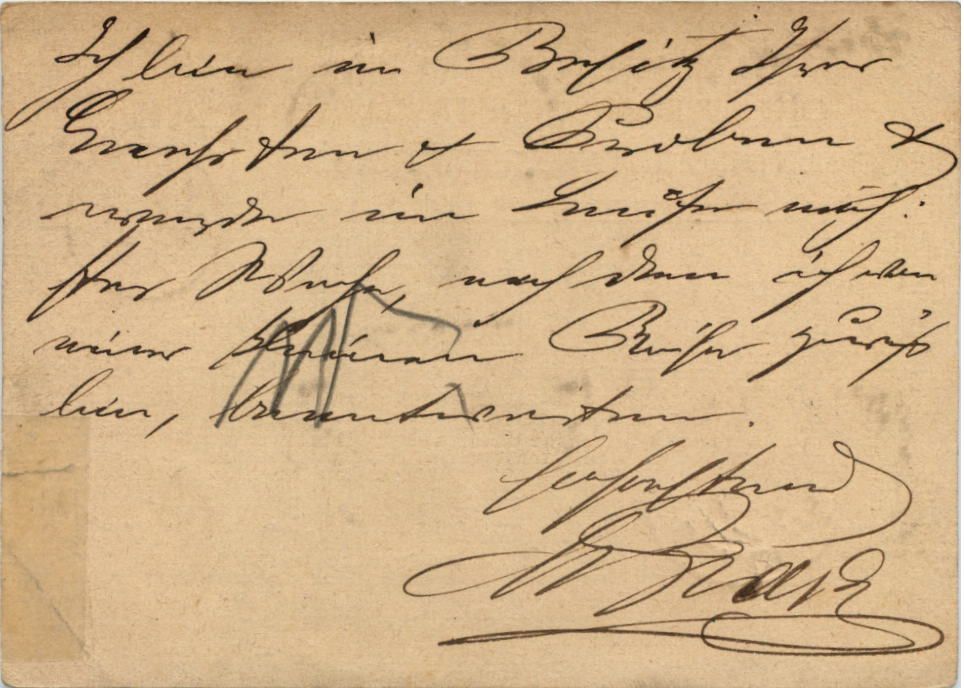 Ich bin im Besitz Ihrer
& Proben &
werde im Laufe näch-
ster Woche, nachdem ich von
einer kleinen Reise zurück
bin, beantworten.
Hochachtend